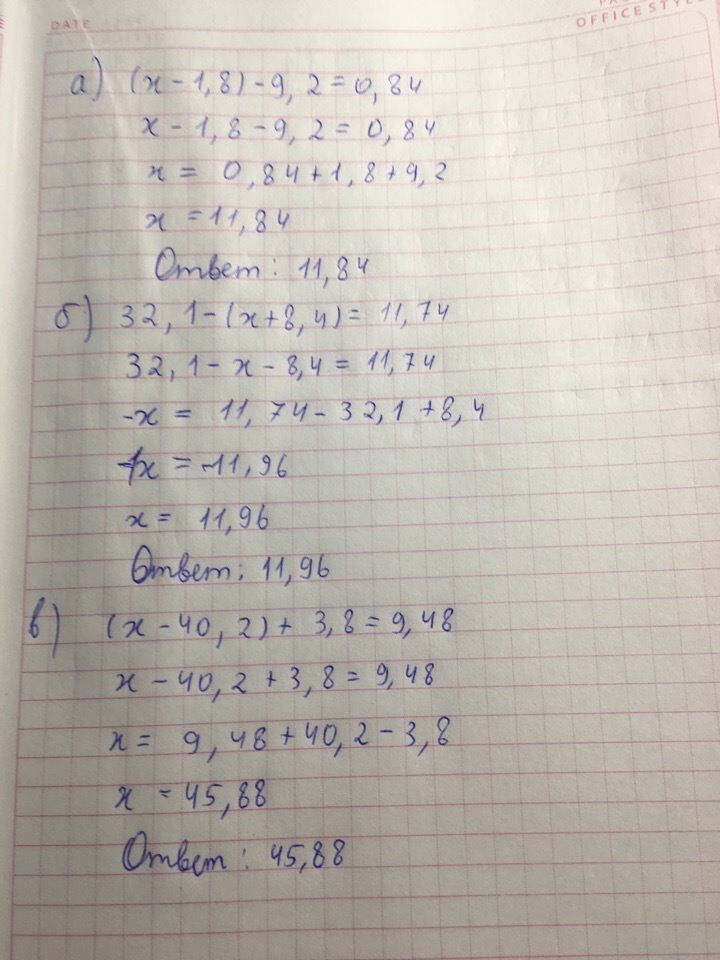 DATE
OFFICE STYLE
а) (x - 1,8) - 9,2 = 0,84
x - 1,8 - 9,2 = 0,84
x = 0,84 + 1,8 + 9,2
x = 11,84
Ответ: 11,84
б) 32,1 - (x + 8,4) = 11,74
32,1 - x - 8,4 = 11,74
-x = 11,74 - 32,1 + 8,4
-x = -11,96
x = 11,96
Ответ: 11,96
в) (x - 40,2) + 3,8 = 9,48
x - 40,2 + 3,8 = 9,48
x = 9,48 + 40,2 - 3,8
x = 45,88
Ответ: 45,88